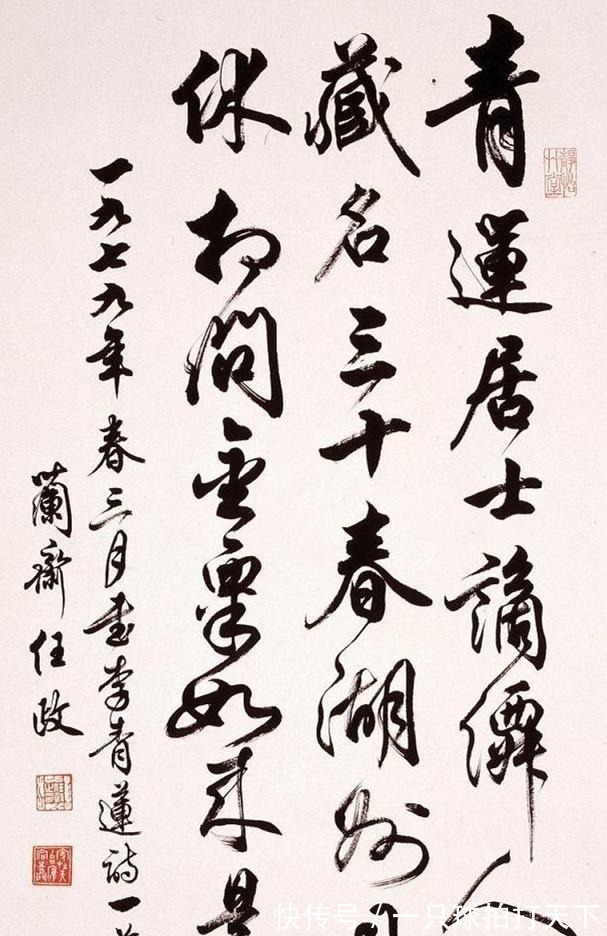 青蓮居士謫僊人
藏名三十春湖州
休相問金粟如来是
一九七九年春三月書李青蓮詩一
蘭齋任政
快传号/一只球拍打天下